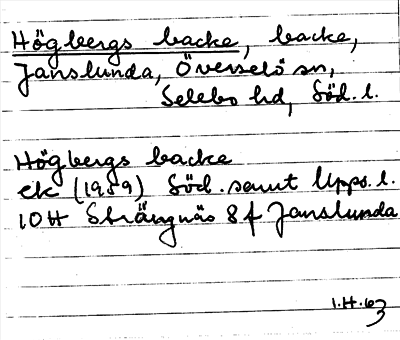 Högbergs backe, backe,
Janslunda, Överselö sn,
Selebo hd, Söd. l.
Högbergs backe
ek (1959) Söd. samt Upps. l.
10H Strängnäs 8f Janslunda
I.H.63